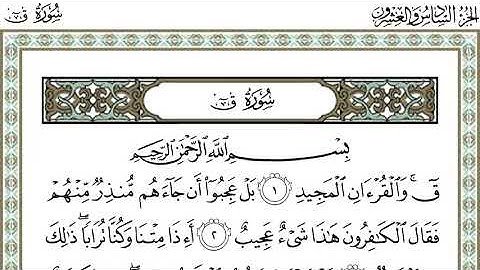 الجزء السادس والعشرون
سورة ق
سورة ق
بسم الله الرحمن الرحيم
قٓ ۚ وَالْقُرْءَانِ الْمَجِيدِ ۝١ بَلْ عَجِبُوٓا۟ أَن جَآءَهُم مُّنذِرٌ مِّنْهُمْ
فَقَالَ الْكَٰفِرُونَ هَٰذَا شَىْءٌ عَجِيبٌ ۝٢ أَءِذَا مِتْنَا وَكُنَّا تُرَابًا ۖ ذَٰلِكَ